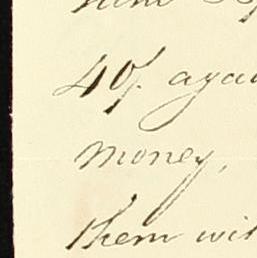 40/. agai
money,
them wit